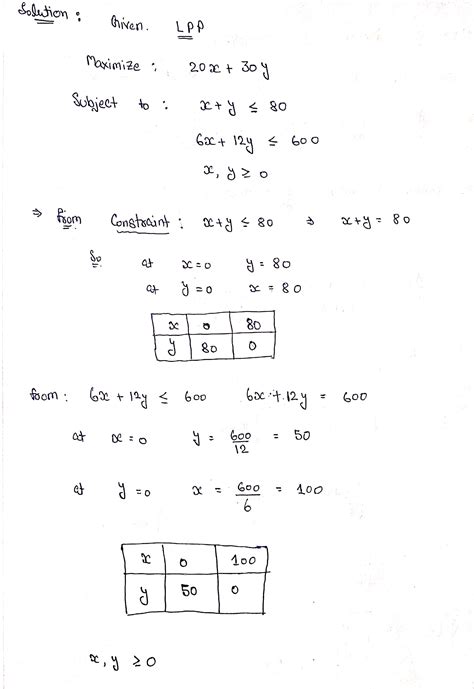 Solution :
Given. LPP
Maximize : 20x + 30y
Subject to : x + y ≤ 80
6x + 12y ≤ 600
x, y ≥ 0
⇒ from Constraint : x+y ≤ 80 ⇒ x+y = 80
So at x=0 y = 80
at y=0 x = 80
x 0 80
y 80 0
from : 6x + 12y ≤ 600 6x + 12y = 600
at x=0 y = 600/12 = 50
at y=0 x = 600/6 = 100
x 0 100
y 50 0
x, y ≥ 0